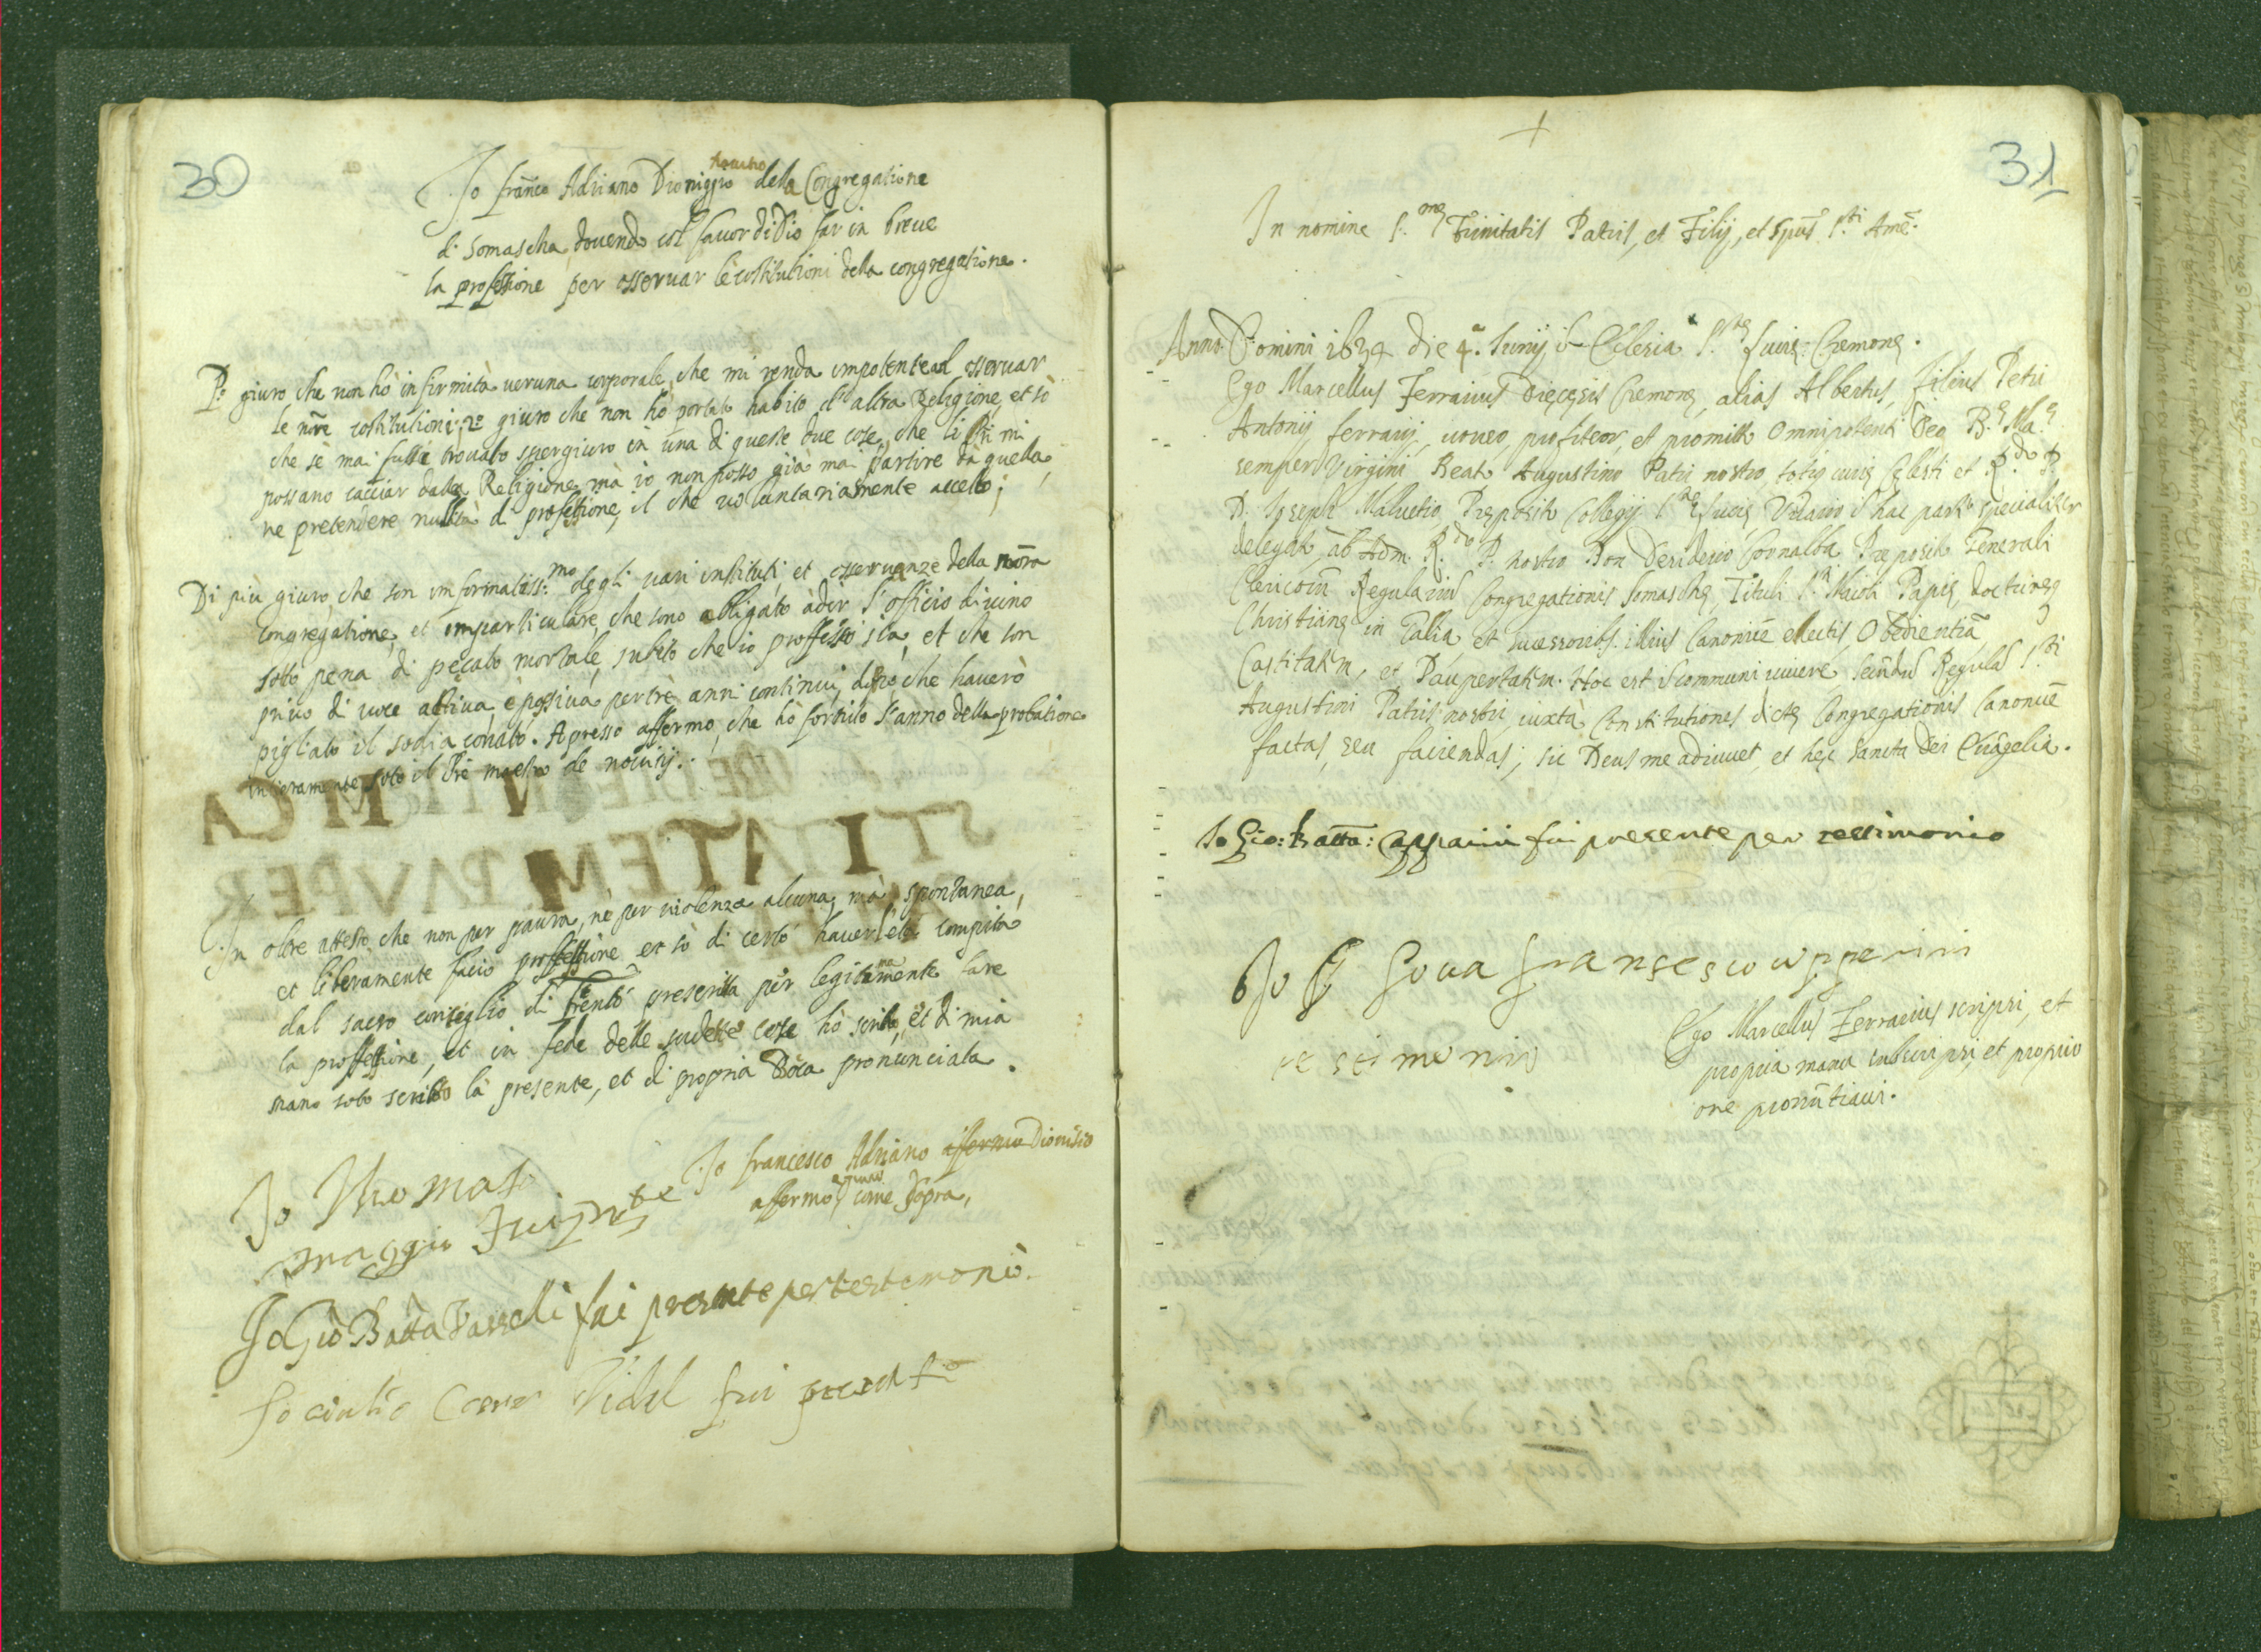 30
novitio
Io franco Adriano Dionigio della Congregatione
di Somascha, dovendo col favor di Dio far in breue
la professione per osseruar le costitutioni della congregatione.
P.o giuro che non hò infirmità ueruna corporale, che mi renda impotente ad osseruar
le nre costitutioni: 2o giuro che non hò portato habito d'altra Religione, et sò
che sè mai fussè trouato spergiuro in una di queste due cose, che li Pri mi
possano cacciar dalla Religione, mà io non posso già mai partire da quella,
ne pretendere nullità di professione, il che uoluntariamente accetto;
Di più giuro, che son informatiss.mo degli uari instituti, et osseruanze della nora
congregatione, et imparticulare, che sono obligato à dir l'officio diuino
sotto pena di pecato mortale, subito che io professo sia, et che son
priuo di uoce attiua, è passiua per trè anni continui, doppò che hauerò
pigliato il sodiaconato. Apresso affermo, che hò fornito l'anno della probatione
interamente soto il Prè maestro de nouitij.
In oltre attesto, che non per paura, nè per uiolenza alcuna, mà spontanea,
et liberamente facio professione et sò di certo hauer l'età compita
dal sacro conseglio di Trento prescritta per legitimamente fare
la professione, et in fede delle sudette cose hò scritto, et di mia
mano soto scritto la presente, et di propria Boca pronunciata.
Io francesco Adriano affermo Dionisio
affermo come sopra,
Io Thomaso
maggio Fui pnte
Io Giò Batta Vasseli fui presente per testemoniò
Io Giulio Cesare Vidal fui presente
31
+
In nomine S.me Trinitatis Patris, et Filij, et Spus S.ti Ame.
Anno Domini 1634 die 4.a Iunij in Eclesia S.tae Lucie Cremone.
Ego Marcellus Ferrarius Diecesis Cremone, alias Albertus, filius Petri
Antonij ferrarij, uoueo, profiteor, et promitto Omnipotenti Deo B.e Ma.e
semper Virgini Beato Augustino Patri nostro, totiq curie Celesti et R.do P.
D. Ioseph Maluetio Preposito Collegij S.tae Lucie Vicario in hac parte specialiter
delegato, ab Adm. R.do P. nostro Don Desiderio Cornalba Preposito Generali
Clericoru Regulariu Congregationis Somasche, Tituli S.ti Maioli Papie, doctrineq
Christiane in Galia, et sucessoribs. illius Canonice electis, Obedientia
Castitatem, et Paupertatem. Hoc est in communi uiuere secundu Regula S.ti
Augustini Patris nostri, iuxtà Constitutiones dicte Congregationis Canonice
factas, seu faciendas; sic Deus me adiuuet, et hec sancta Dei Euagelia.
Io Gio: Batta: Capparini fui presente per testimonio
Io Gioua fransesco upperini
testimonio
Ego Marcellus Ferrarius scripsi, et
propria manu subscripsi, et proprio
ore pronuntiaui.